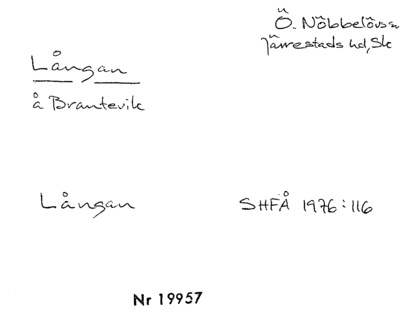 Ö. Nöbbelövs sn
Järrestads hd, Sk
Långan
å Brantevik
Långan
SHFÅ 1976:116
Nr 19957